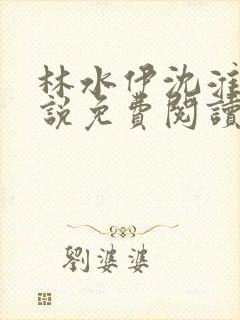 林水伊沈淮
說免費閱讀
劉婆婆